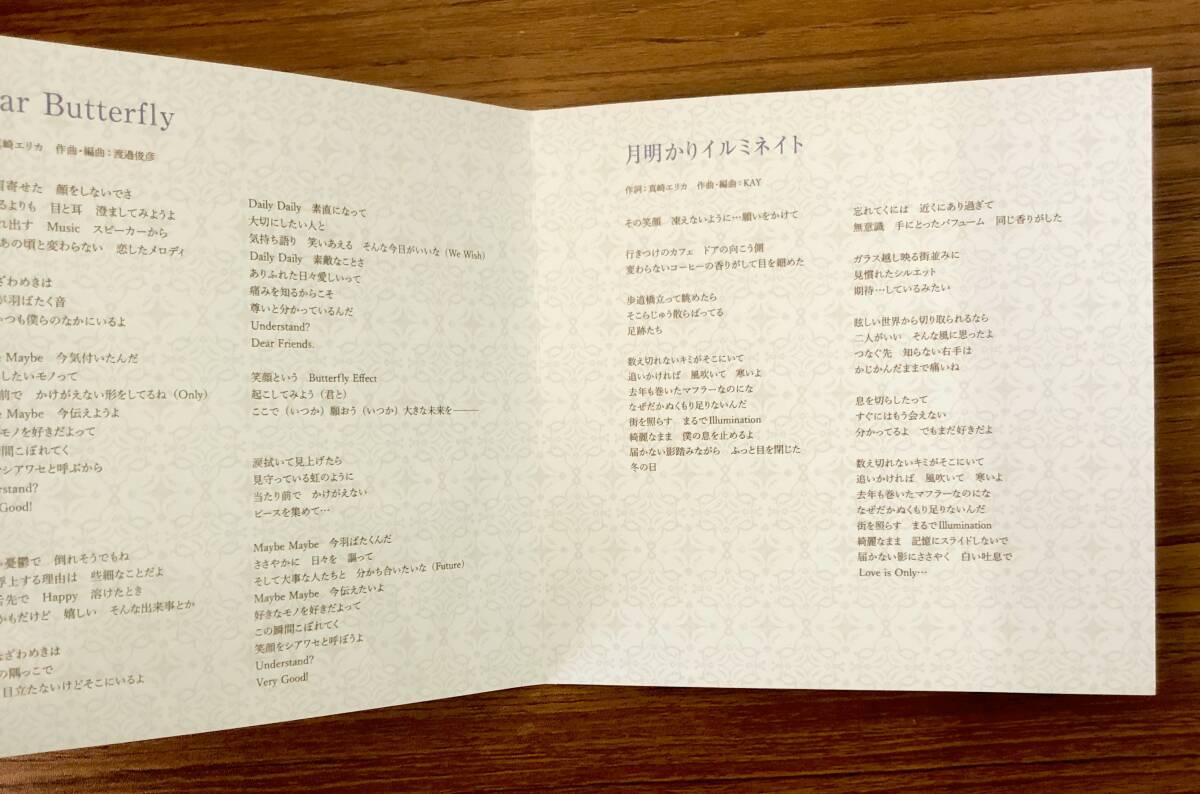 ar Butterfly
崎エリカ　作曲・編曲：渡邉俊彦
寄せた　顔をしないでさ
るよりも　目と耳　澄ましてみようよ
れ出す　Music　スピーカーから
あの頃と変わらない　恋したメロディ
ざわめきは
が羽ばたく音
いつも僕らのなかにいるよ
e Maybe　今気付いたんだ
したいモノって
前で　かけがえない形をしてるね（Only）
e Maybe　今伝えようよ
モノを好きだよって
間こぼれてく
シアワセと呼ぶから
rstand?
Good!
憂鬱で　倒れそうでもね
浮上する理由は　些細なことだよ
舌先で　Happy　溶けたとき
かもだけど　嬉しい　そんな出来事とか
ざわめきは
の隅っこで
目立たないけどそこにいるよ
Daily Daily　素直になって
大切にしたい人と
気持ち語り　笑いあえる　そんな今日がいいな（We Wish）
Daily Daily　素敵なことさ
ありふれた日々愛しいって
痛みを知るからこそ
尊いと分かっているんだ
Understand?
Dear Friends.
笑顔という　Butterfly Effect
起こしてみよう（君と）
ここで（いつか）願おう（いつか）大きな未来を———
涙拭いて見上げたら
見守っている虹のように
当たり前で　かけがえない
ピースを集めて…
Maybe Maybe　今羽ばたくんだ
ささやかに　日々を　謳って
そして大事な人たちと　分かち合いたいな（Future）
Maybe Maybe　今伝えたいよ
好きなモノを好きだよって
この瞬間こぼれてく
笑顔をシアワセと呼ぼうよ
Understand?
Very Good!
月明かりイルミネイト
作詞：真崎エリカ　作曲・編曲：KAY
その笑顔　凍えないように…願いをかけて
行きつけのカフェ　ドアの向こう側
変わらないコーヒーの香りがして目を細めた
歩道橋立って眺めたら
そこらじゅう散らばってる
足跡たち
数え切れないキミがそこにいて
追いかければ　風吹いて　寒いよ
去年も巻いたマフラーなのにな
なぜだかぬくもり足りないんだ
街を照らす　まるでIllumination
綺麗なまま　僕の息を止めるよ
届かない影踏みながら　ふっと目を閉じた
冬の日
忘れてくには　近くにあり過ぎて
無意識　手にとったパフューム　同じ香りがした
ガラス越し映る街並みに
見慣れたシルエット
期待…しているみたい
眩しい世界から切り取られるなら
二人がいい　そんな風に思ったよ
つなぐ先　知らない右手は
かじかんだままで痛いね
息を切らしたって
すぐにはもう会えない
分かってるよ　でもまだ好きだよ
数え切れないキミがそこにいて
追いかければ　風吹いて　寒いよ
去年も巻いたマフラーなのにな
なぜだかぬくもり足りないんだ
街を照らす　まるでIllumination
綺麗なまま　記憶にスライドしないで
届かない影にささやく　白い吐息で
Love is Only…